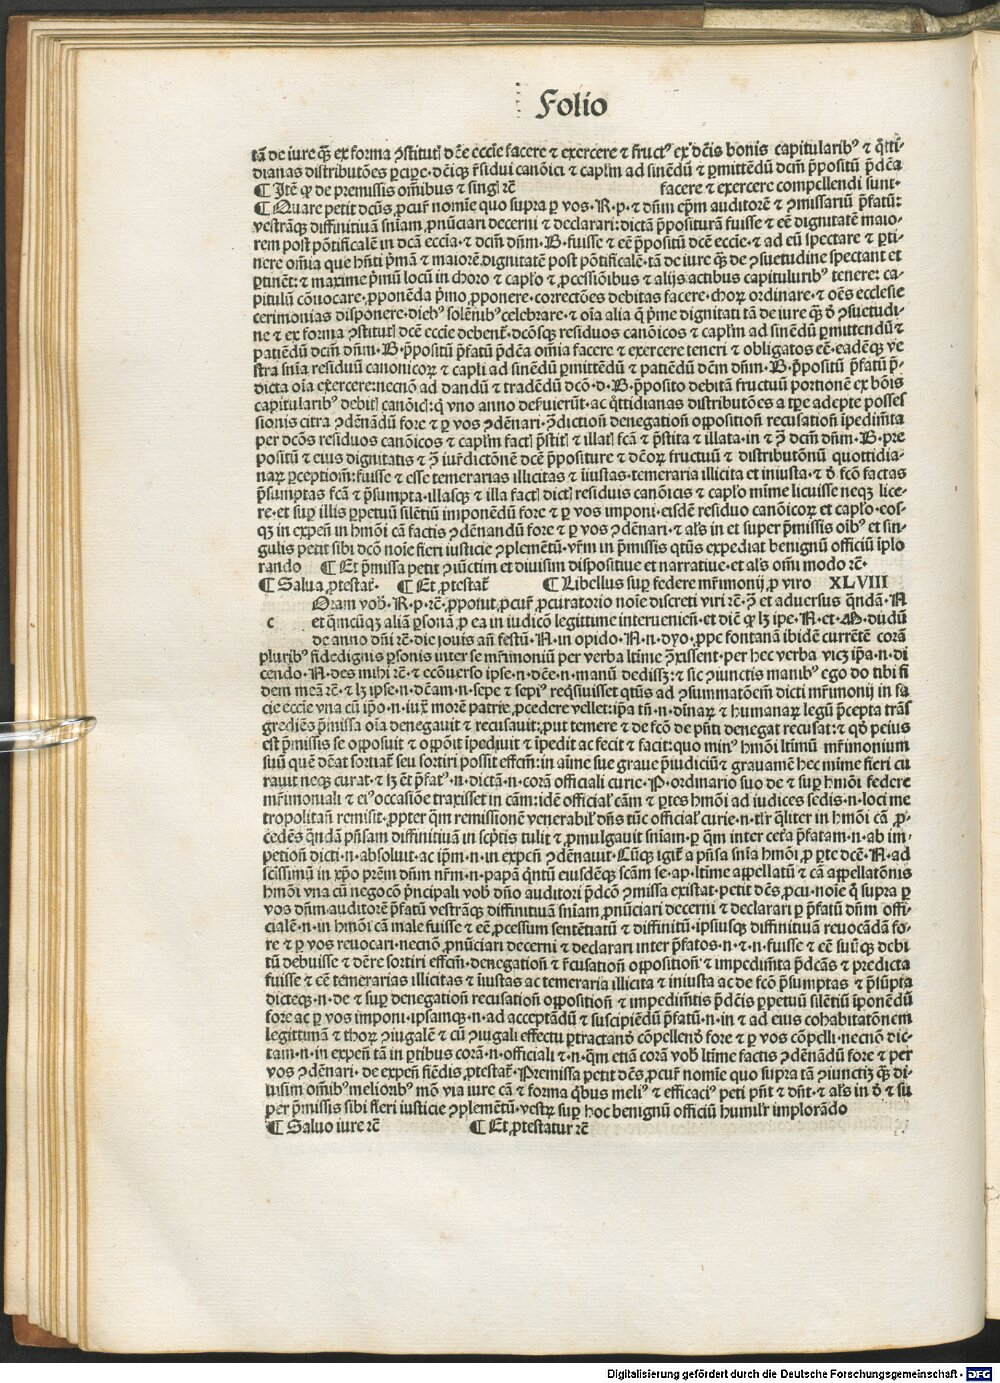 Folio
tā de iure q̄ꝫ ex forma ꝯstitutꝭ dc̄e ecc̄ie facere ⁊ exercere ⁊ fruct⁹ ex dc̄is bonis capitularib⁹ ⁊ q̊tti-
dianas distributōes ꝑcipe·dc̄iqꝫ r̄sidui canōici ⁊ caplm̄ ad sinēdū ⁊ ꝑmittēdū dcm̄ p̄positū p̄dc̄a
¶ Itē ꝙ de premissis om̄ibus ⁊ singꝭ rc̄ facere ⁊ exercere compellendi sunt·
¶ Quare petit dcūs ꝓcur̄ nomīe quo supra ꝑ vos·R·p·⁊ dn̄m ep̄m auditorē ⁊ ꝯmissariū p̄fatū:
vestrāqꝫ diffinitiuā sn̄iam ꝓnūciari decerni ⁊ declarari: dictā p̄positurā fuisse ⁊ eē dignitatē maio-
rem post pōtificalē in dcā eccīa·⁊ dcm̄ dn̄m·B·fuisse ⁊ eē p̄positū dcē eccīe·⁊ ad eū spectare ⁊ ꝑti-
nere om̄ia que hn̄ti p̄mā ⁊ maiorē dignitatē post pōtificalē·tā de iure q̄ꝫ de ꝯsuetudine spectant et
ꝑtinēt: ⁊ maxime p̄mū locū in choro ⁊ caplo ⁊ ꝓcessiōibus ⁊ alijs actibus capituluribꝰ tenere: ca-
pitulū cōuocare·ꝓponēda p̄mo ꝓponere·correctōes debitas facere·choꝝ ordinare·⁊ oēs ecclesie
cerimonias disponere·dieb⁹ solēnib⁹ celebrare·⁊ oīa alia q̄ p̄me dignitati tā de iure q̄ꝫ ꝯsuetudi-
ne ⁊ ex forma ꝯstitutꝭ dcē eccīe debent·dcōsqꝫ residuos canōicos ⁊ caplm̄ ad sinēdū ꝑmittendū ⁊
patiēdū dcm̄ dn̄m·B·p̄positū p̄fatū p̄dc̄a om̄ia facere ⁊ exercere teneri ⁊ obligatos eē·eadēqꝫ ve
stra sn̄ia residuū canonicoꝝ ⁊ capli ad sinēdū ꝑmittēdū ⁊ patiēdū dcm̄ dn̄m·B·p̄positū p̄fatū p̄-
dicta oīa exercere: necnō ad dandū ⁊ tradēdū dcō·d·B·p̄posito debitā fructuū portionē ex bōis
capitularib⁹ debitꝭ canōicꝭ: q̇ vno anno deẜuierūt·ac q̊ttidianas distributōes a tp̄e adepte posses
sionis citra ꝯdēnādū fore ⁊ ꝑ vos ꝯdēnari·ꝯ̄dictioñ denegatioñ oppositioñ recusatioñ īpedimt̄a
per dcōs residuos canōicos ⁊ caplm̄ factꝭ p̄stitꝭ ⁊ illatꝭ fcā ⁊ p̄stita ⁊ illata·in ⁊ ꝯ̄ dcm̄ dn̄m·B·pre
positū ⁊ eius dignitatis ⁊ ꝯ̄ iur̄dictōnē dcē p̄positure ⁊ dcōꝝ fructuū ⁊ distributōnū quottidia-
naꝝ ꝑceptioñ: fuisse ⁊ esse temerarias illicitas ⁊ iīustas·temeraria illicita et iniusta·⁊ fcō factas
p̄sumptas fcā ⁊ p̄sumpta·illasqꝫ ⁊ illa factꝭ dictꝭ residuis canōicis ⁊ caplo mīme licuisse neqꝫ lice-
re·et suꝑ illis ꝑpetuū silētiū imponēdū fore ⁊ ꝑ vos imponi·eisdē residuo canōicoꝝ et caplo·eos-
qꝫ in expeñ in hmōi cā factis ꝯdēnandū fore ⁊ ꝑ vos ꝯdēnari·⁊ als̄ in et super p̄missis oīb⁹ et sin-
gulis petit sibi dcō noīe fieri iusticie ꝯplemētū·vrm̄ in p̄missis qtūs expediat benignū officiū īplo
rando ¶ Et p̄missa petit ꝯiūctim et diuisim dispositiue et narratiue·et als̄ om̄i modo rc̄·
¶ Salua ꝓtestat̄· ¶ Et ꝓtestat̄ ¶ Libellus suꝑ federe mr̄imonij ꝓ viro XLVIII
Oram vob̄·R·p·rc̄·ꝓpoīut ꝓcur̄ ꝓcuratorio noīe discreti viri rc̄·ꝯ̄ et aduersus q̄ndā·N
c et q̄mcūqꝫ aliā ꝑsonā ꝓ ea in iudicō legittime interueniēn̄·et dic̄ ꝙ lꝫ ipe·N·et·M·dudū
de anno dn̄i rc̄·die iouis an̄ festū·N·in opido·N·n·dyo·ꝓpe fontanā ibidē currētē corā
pluribꝰ fidedignis ꝑsonis inter se mr̄imoniū per verba ltīme ꝯ̄xissent·per hec verba vicꝫ ip̄a·n·di
cendo·N·des mihi rc̄·⁊ ecōuerso ipse·n·dcē·n·manū dedissꝫ: ⁊ sic ꝯiunctis manib⁹ ego do tibi fi
dem meā rc̄·⁊ lꝫ ipse·n·dc̄am·n·sepe ⁊ sepi⁹ reqsiuisset qtūs ad ꝯsummatōem dicti mr̄imonij in fa
cie eccīe vna cū ip̄o·n·iuxͣ morē patrie ꝓcedere vellet: ip̄a tn̄·n·dīnaꝝ ⁊ humanaꝝ legū p̄cepta trās
grediēs p̄missa oīa denegauit ⁊ recusauit: ꝓut temere ⁊ de fcō de pn̄ti denegat recusat: ⁊ qd̄ peius
est p̄missis se opposuit ⁊ oppoīt īpediuit ⁊ īpedit ac fecit ⁊ facit: quo min⁹ hmōi ltīmū mr̄imonium
suū quē dēat sortiat̄ seu sortiri possit effcm̄: in aīme sue graue p̄iudiciū ⁊ grauamē hec mime fieri cu
rauit neqꝫ curat·⁊ lꝫ ēt p̄fat⁹·n·dictā·n·corā officiali curie·P·ordinario suo de ⁊ suꝑ hmōi federe
mr̄imoniali ⁊ ei⁹ occasiōe traxisset in cām: idē official̄ cām ⁊ ꝑtes hmōi ad iudices sedis·n·loci me
tropolitañ remisit·ꝓpter q̄m remissionē venerabil̄ dn̄s tūc official̄ curie·n·tlr̄ q̄liter in hmōi cā ꝓ-
cedēs q̄ndā pn̄sam diffinitiuā in scp̄tis tulit ⁊ ꝓmulgauit sn̄iam·ꝑ q̄m inter cet̄a p̄fatam·n·ab im-
petioñ dicti·n·absoluit·ac ip̄m·n·in expeñ ꝯdēnauit·Cūqꝫ igit̄ a pn̄sa sn̄ia hmōi ꝓ ꝑte dcē·N·ad
scissimū in xp̄o pr̄em dn̄m nr̄m·n·papā q̄ntū eiusdēqꝫ scām se·ap·ltīme appellatū ⁊ cā appellatōnis
hmōi vna cū negocō p̄ncipali vob̄ dn̄o auditori p̄dcō ꝯmissa existat·petit dcēs ꝓcu·noīe q̊ supra ꝑ
vos dn̄m auditorē p̄fatū vestrāqꝫ diffinitiuā sn̄iam ꝓnūciari decerni ⁊ declarari ꝑ p̄fatū dn̄m offi-
cialē·n·in hmōi cā male fuisse ⁊ eē ꝓcessum sentētiatū ⁊ diffinitū·ipsiusqꝫ diffinitiuā reuocādā fo-
re ⁊ ꝑ vos reuocari·necnō ꝓnūciari decerni ⁊ declarari inter p̄fatos·n·⁊·n·fuisse ⁊ eē suūqꝫ debi
tū debuisse ⁊ dēre sortiri effcm̄·denegatioñ ⁊ r̄cusatioñ oppositioñ ⁊ impedimt̄a p̄dcās ⁊ predicta
fuisse ⁊ eē temerarias illicitas ⁊ iīustas ac temeraria illicita ⁊ iniusta ac de fcō p̄sumptas ⁊ p̄sūpta
dicteqꝫ·n·de ⁊ suꝑ denegatioñ recusatioñ oppositioñ ⁊ impedimt̄is p̄dcīs ꝑpetuū silētiū īponēdū
fore ac ꝑ vos imponi·ipsamqꝫ·n·ad acceptādū ⁊ suscipiēdū p̄fatū·n·in ⁊ ad eius cohabitatōnem
legittimā ⁊ thoꝝ ꝯiugalē ⁊ cū ꝯiugali effectu ꝑtractanō cōpellenō fore ⁊ ꝑ vos cōpelli·necnō dic-
tam·n·in expeñ tā in ꝑtibus corā·n·officiali ⁊·n·q̄m etiā corā vob̄ ltīme factis ꝯdēnādū fore ⁊ per
vos ꝯdēnari·de expeñ fiēdis ꝓtestat̄·Premissa petit dcēs ꝓcur̄ nomīe quo supra tā ꝯiunctiꝫ q̄ꝫ di-
uisim om̄ib⁹ meliorib⁹ mō via iure cā ⁊ forma q̄bus meli⁹ ⁊ efficaci⁹ peti pn̄t ⁊ dn̄t·⁊ als̄ in ⁊ su
per p̄missis sibi fieri iusticie ꝯplemētū·vestꝝ suꝑ hoc benignū officiū humilr̄ implorādo
¶ Saluo iure rc̄ ¶ Et ꝓtestatur rc̄
Digitalisierung gefördert durch die Deutsche Forschungsgemeinschaft - DFG